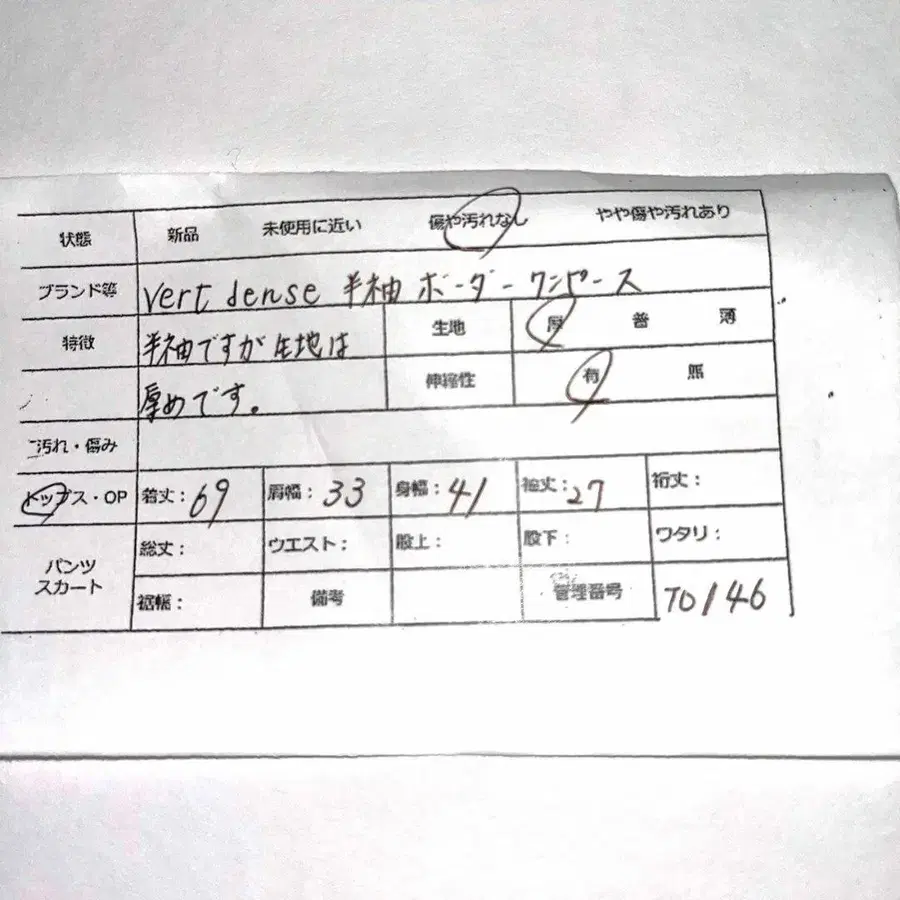 状態 新品 未使用に近い 傷や汚れなし やや傷や汚れあり
ブランド等 vert dense 半袖 ボーダーワンピース
特徴 半袖ですが生地は 生地 厚 普 薄
厚めです。 伸縮性 有 無
汚れ・傷み
トップス・OP 着丈:69 肩幅:33 身幅:41 袖丈:27 裄丈:
パンツ スカート 総丈: ウエスト:股上: 股下: ワタリ:
裾幅: 備考 管理番号 T0146